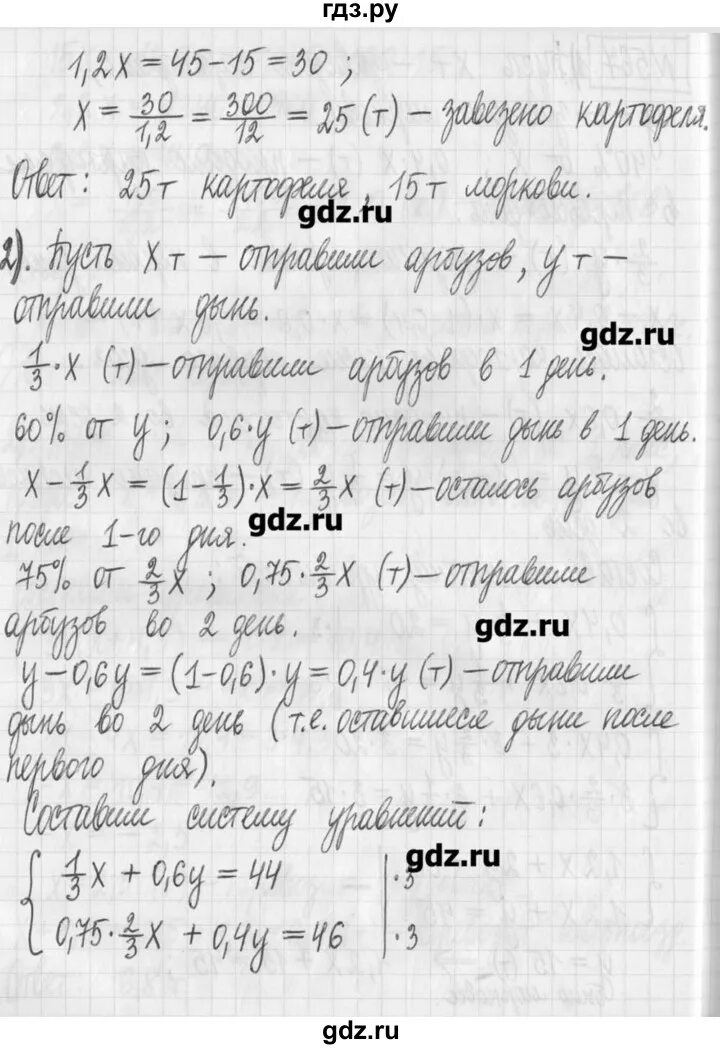 гдз.ру
1,2x = 45-15 = 30 ;
x = 30/1,2 = 300/12 = 25 (т) — завезено картофеля.
Ответ: 25т картофеля, 15т моркови.
gdz.ru
2). Пусть x т — отправили арбузов, y т —
отправили дынь.
gdz.ru
1/3·x (т) — отправили арбузов в 1 день.
60% от y ; 0,6·y (т) — отправили дынь в 1 день.
x - 1/3x = (1-1/3)·x = 2/3x (т) — осталось арбузов
после 1-го дня.
gdz.ru
75% от 2/3x ; 0,75·2/3x (т) — отправили
арбузов во 2 день.
gdz.ru
y - 0,6y = (1-0,6)·y = 0,4·y (т) — отправили
дынь во 2 день (т.е. оставшиеся дыни после
первого дня).
Составим систему уравнений:
{ 1/3x + 0,6y = 44 | ·3
gdz.ru
0,75·2/3x + 0,4y = 46 | ·3
gdz.ru